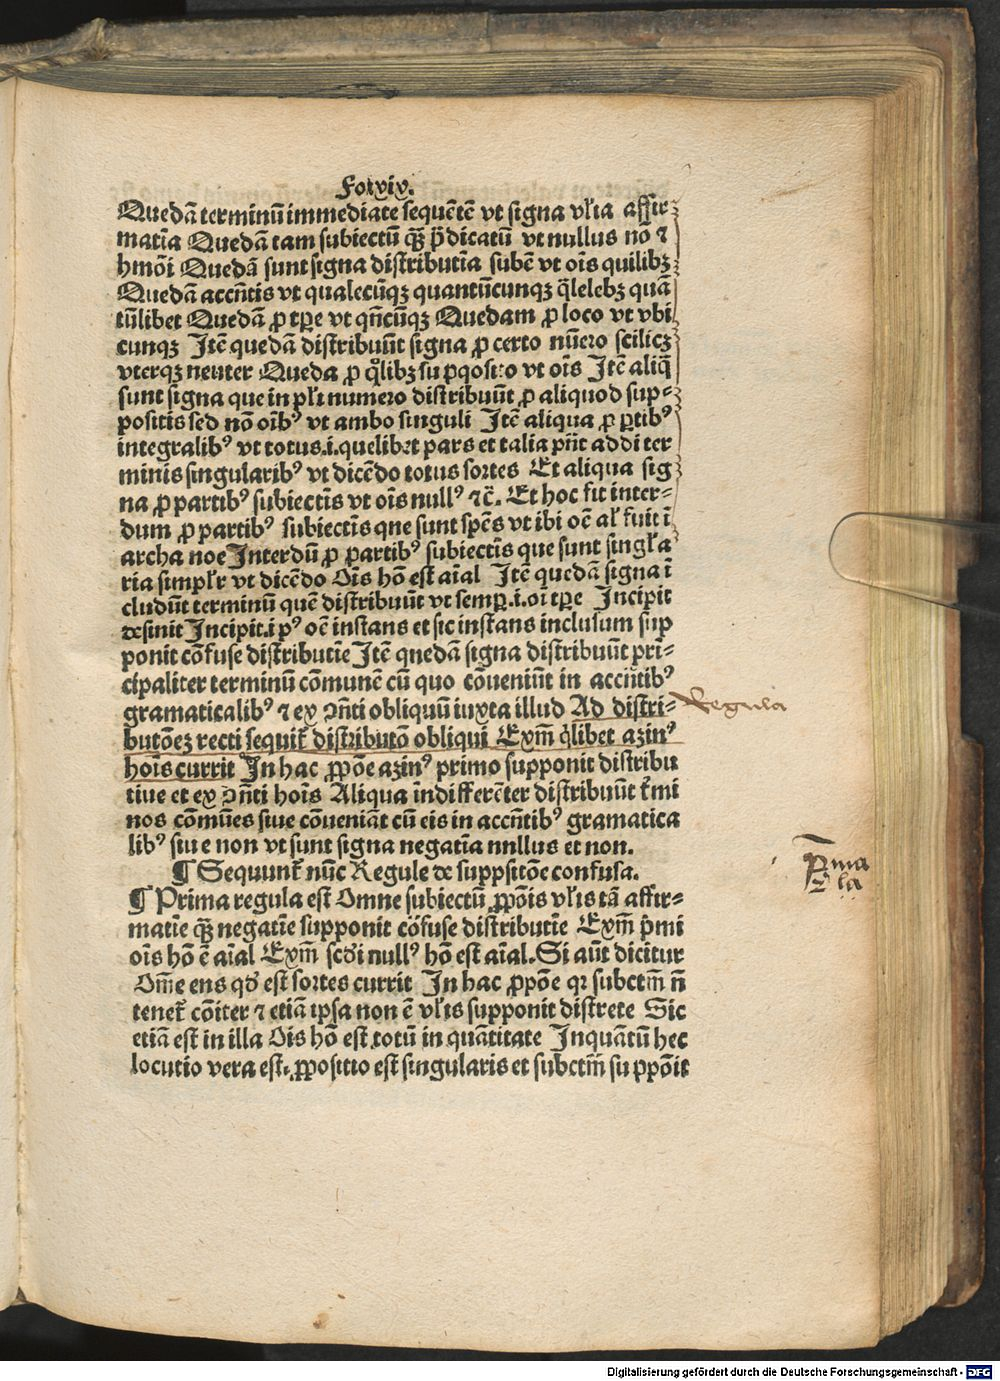 Fo.xix.
Quedā terminū immediate sequētē vt signa vl̄ia affir⸗
matīa Quedā tam subiectū qȝ p̄dicatū vt nullus nō ⁊
hmōi Quedā sunt signa distributīa subē vt oīs quilibȝ
Quedā accn̄tis vt qualecūqȝ quantūcunqȝ q̄lelebȝ quā
tūlibet Quedā ꝓ tp̄e vt qn̄cūqȝ Quedam ꝓ loco vt vbi
cunqȝ Itē quedā distribuūt signa ꝓ certo nūero scilicȝ
vterqȝ neuter Queda ꝓ q̄libȝ suppositо vt oīs Itē aliq̄
sunt signa que in pl̄i numero distribuūt ꝓ aliquod sup⸗
positis sed nō oībꝰ vt ambo singuli Itē aliqua ꝓ ꝑtibꝰ
integralibꝰ vt totus.i.quelibet pars et talia pn̄t addi ter
minis singularibꝰ vt dicēdo totus sortes Et aliqua sig
na ꝓ partibꝰ subiectīs vt oīs nullꝰ ⁊c̄. Et hoc fit inter⸗
dum ꝓ partibꝰ subiectīs qne sunt sp̄es vt ibi oē al̄ fuit ī
archa noe Interdū ꝓ partibꝰ subiectīs que sunt singl̄a
ria simpl̄r vt dicēdo Oīs hō est aīal Itē quedā signa ī
cludūt terminū quē distribuūt vt semꝑ.i.oī tp̄e Incipit
desinit Incipit.i pꝰ oē instans et sic instans inclusum sup
ponit cōfuse distributīe Itē qnedā signa distribuūt prī⸗
cipaliter terminū cōmunē cū quo cōueniūt in accn̄tibꝰ
gramaticalibꝰ ⁊ ex ↄn̄ti obliquū iuxta illud Ad distri⸗
butōeȝ recti sequit̄ distributō obliqui Exm̄ q̄libet azinꝰ
hoīs currit In hac ꝓpōe azinꝰ primo supponit distribu
tiue et ex ↄn̄ti hoīs Aliqua īndifferēter distribuūt t̄mi
nos cōmūes siue cōueniāt cū eis in accn̄tibꝰ gramatica
libꝰ siue non vt sunt signa negatīa nnllus et non.
¶ Sequunt̄ nūc Regule de suppsitōe confusa.
¶ Prima regula est Omne subiectū ꝓpōis vl̄is tā affir⸗
matīe qȝ negatīe supponit cōfuse distributīe Exm̄ p̄mi
oīs hō ē aīal Exm̄ scd̄i nullꝰ hō est aīal. Si aūt dicitur
Om̄e ens qd̄ est sortes currit In hac ꝓpōe qꝛ subctm̄ n̄
tenet̄ cōiter ⁊ etiā ip̄sa non ē vl̄is supponit distrete Sic
etiā est in illa Ois hō est totū in quātitate Inquātū hec
locutio vera est. ꝓpositio est singularis et subctm̄ suppōit
Regula
P̄ma
r̄la
Digitalisierung gefördert durch die Deutsche Forschungsgemeinschaft - DFG